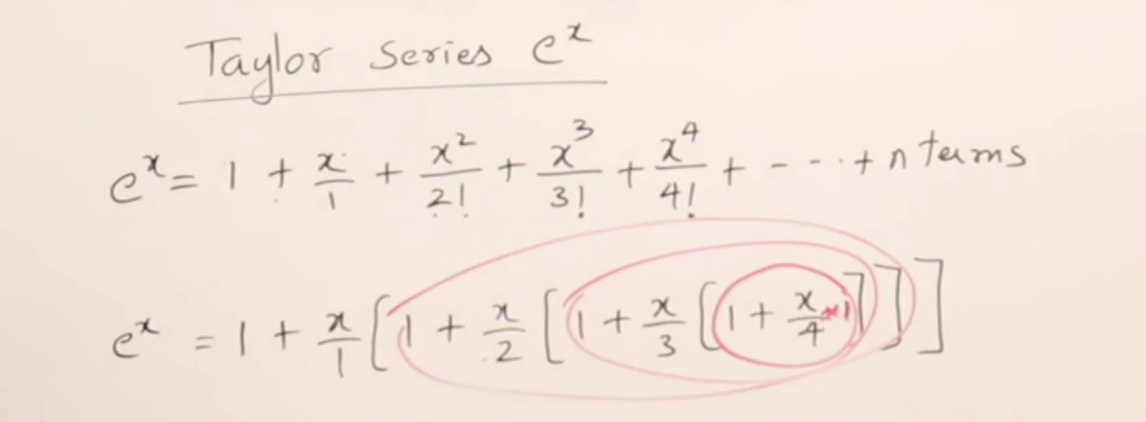 Taylor Series e^x
e^x = 1 + x/1 + x^2/2! + x^3/3! + x^4/4! + - - - + n terms
e^x = 1 + x/1 [1 + x/2 [1 + x/3 [1 + x/4 *1]]]